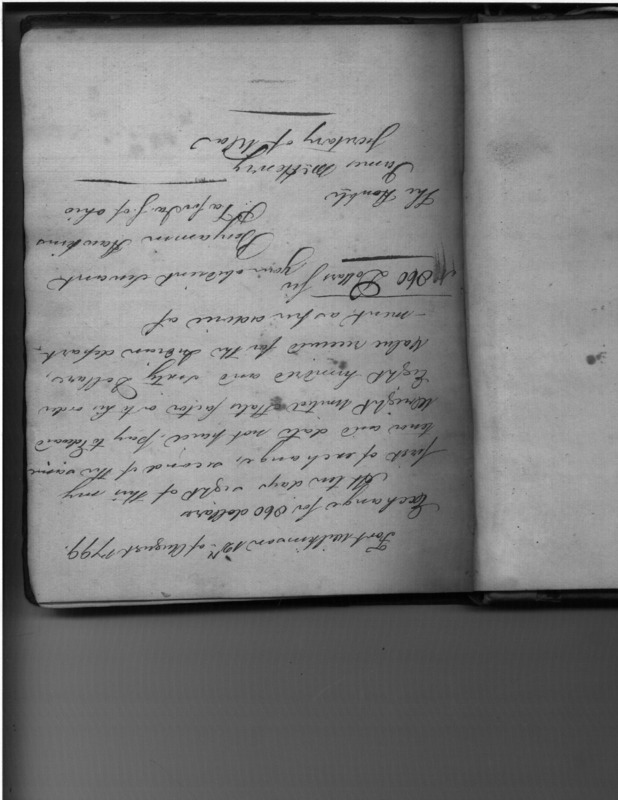 Fort Wilkinson 12th of August 1799.
Exchange for 860 dollars
At ten days sight of this my
first of exchange, second of the same
tenor and date not paid, pay to Edward
Wright United States factor or to his order
Eight hundred and sixty Dollars,
Value received for the Indian depart,
-ment as per advice of
860 Dollars Sir your obedient servant
Benjamin Hawkins
P. T. A. for I. A. S. of Ohio
The Honble
James McHenry
Secretary of War